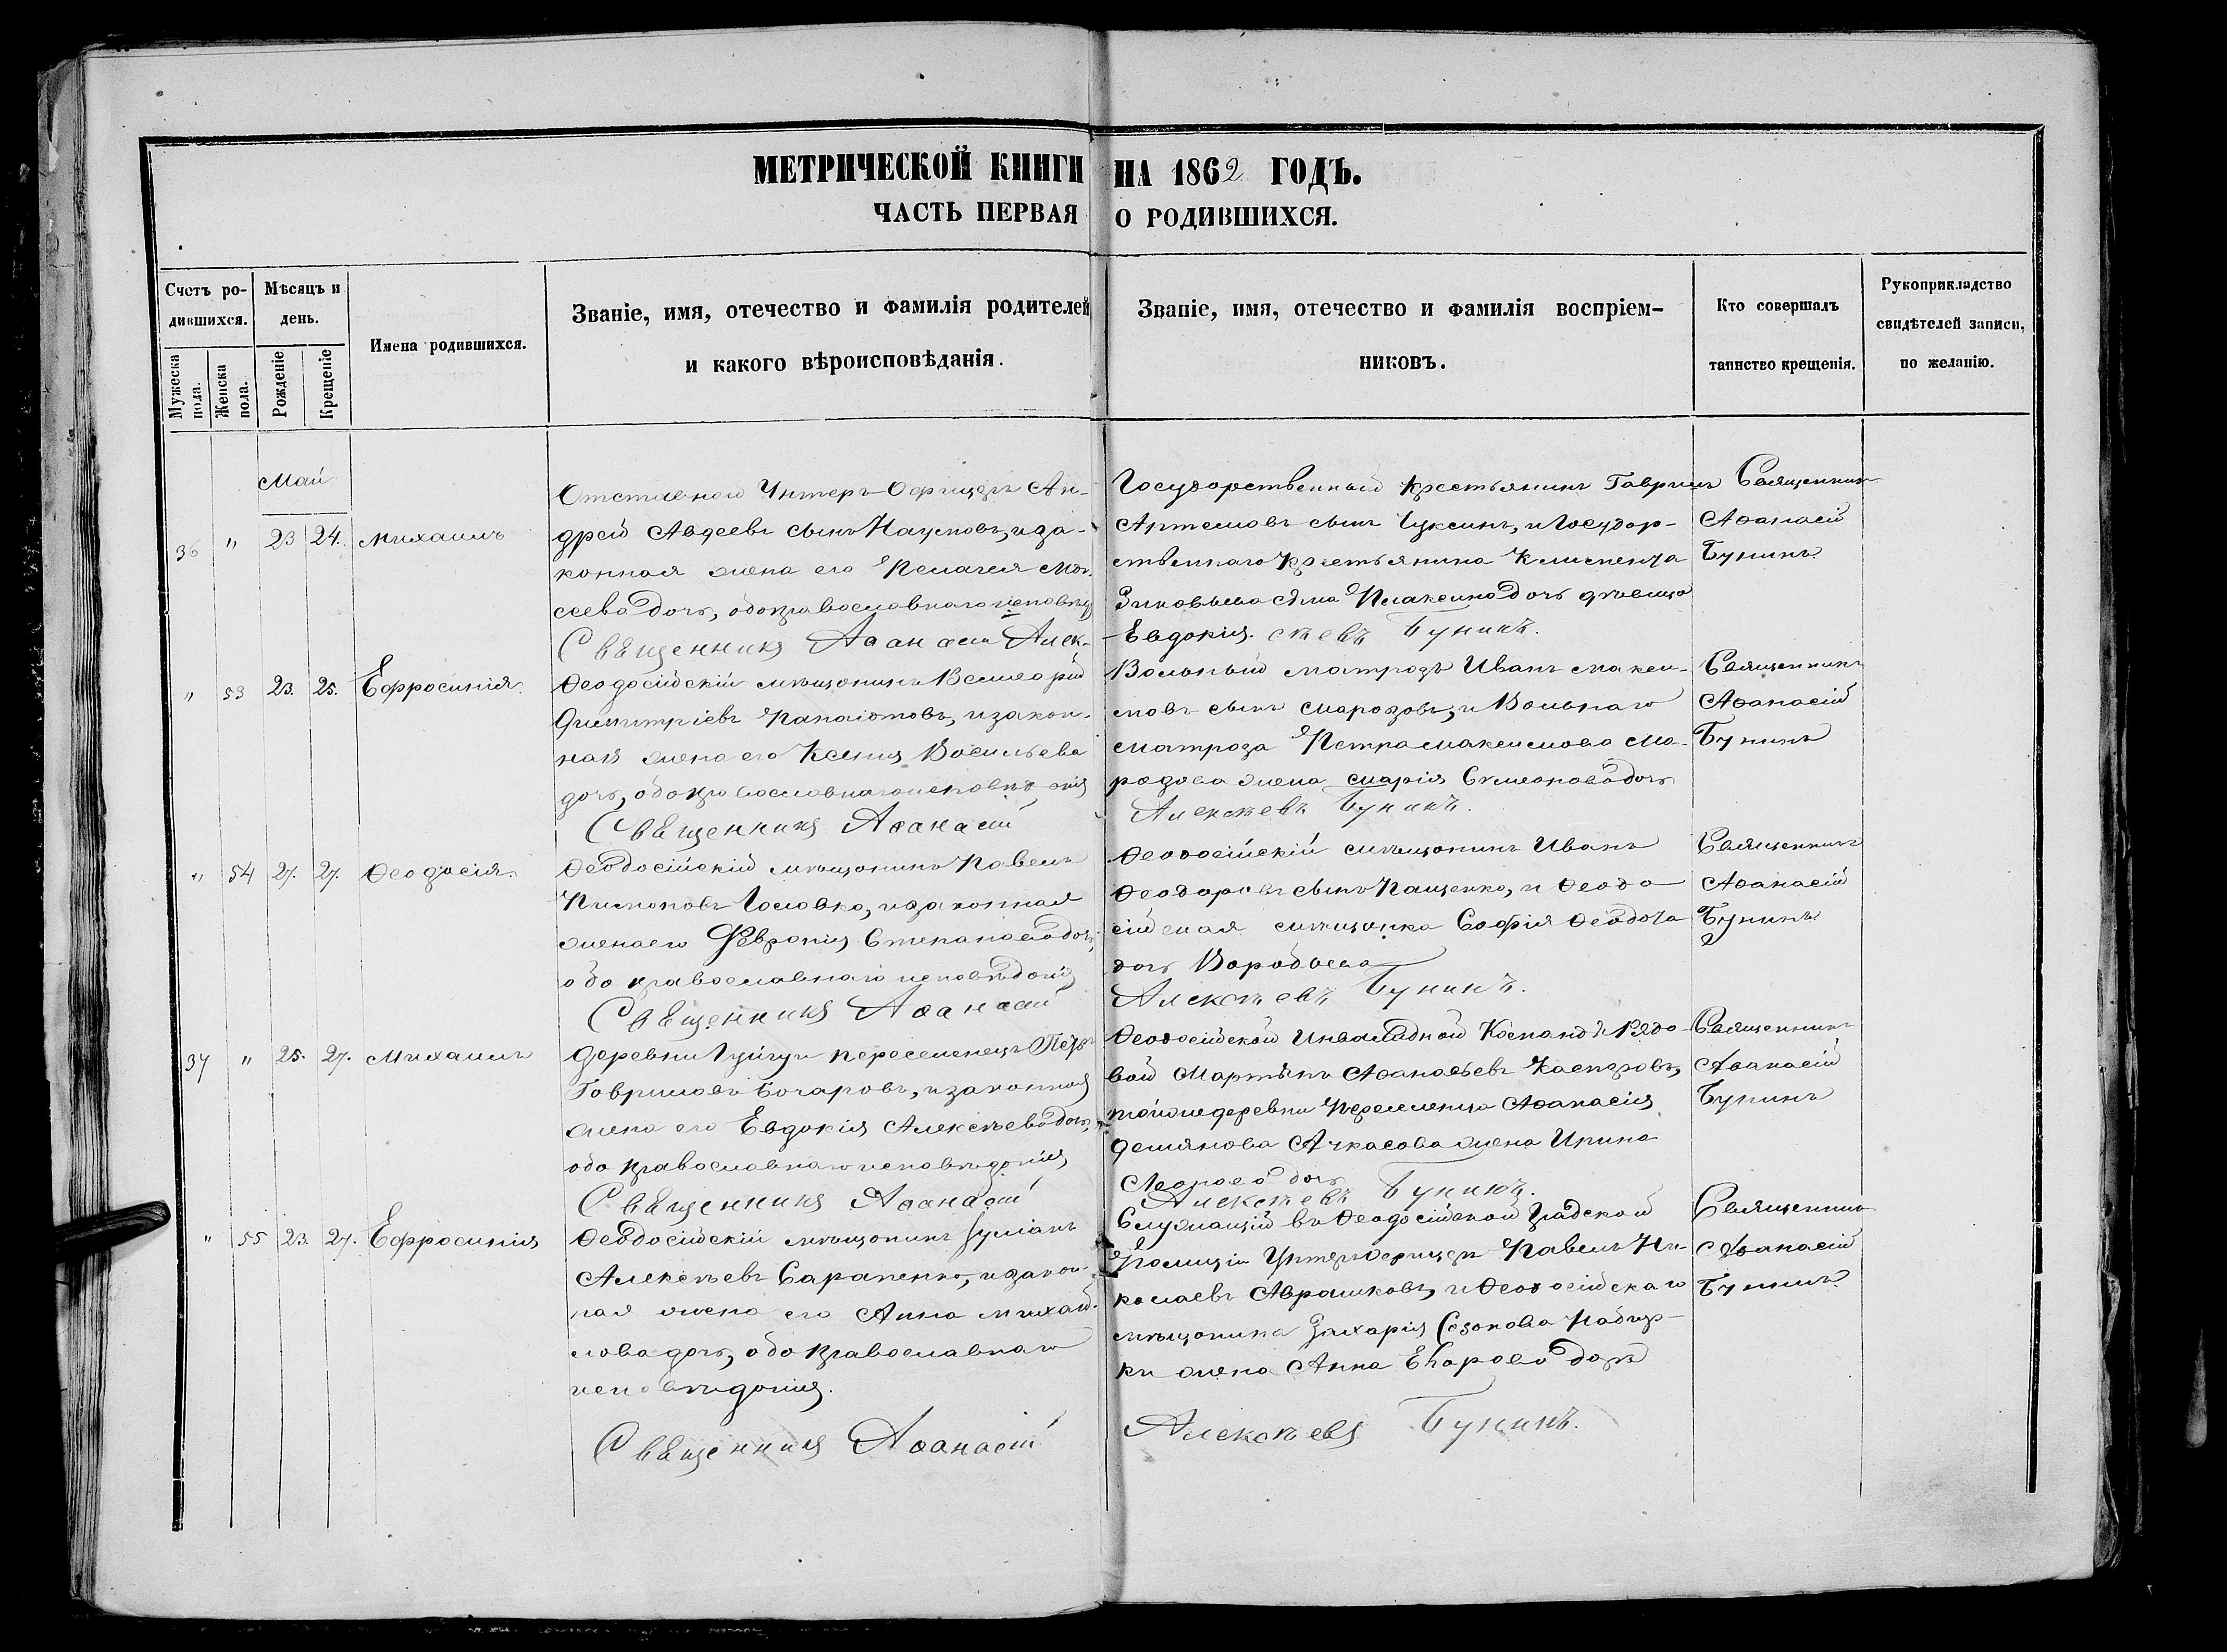 МЕТРИЧЕСКОЙ КНИГИ НА 1862 ГОДЪ.
ЧАСТЬ ПЕРВАЯ О РОДИВШИХСЯ.
Счетъ ро-
дившихся.
Мужеска пола.
Женска пола.
Мѣсяцъ и
день.
Рожденіе
Крещеніе
Имена родившихся.
Званіе, имя, отечество и фамилія родителей
и какого вѣроисповѣданія.
Званіе, имя, отечество и фамилія воспріем-
никовъ.
Кто совершалъ
таинство крещенія.
Рукоприкладство
свидѣтелей записи,
по желанію.
Май
36 " 23 24. Михаилъ
Отставной Унтеръ-Офицеръ Ан-
дрей Авдеевъ сынъ Наумовъ, и за-
конная жена его Пелагея Мои
сеева дочь, оба православнаго исповѣд
Государственный крестьянинъ Гаврилъ
Артемовъ сынъ и Государ-
ственнаго крестьянина Климента
Зиновьева дочь дѣвица
Евдокія.
Священникъ
Афанасій
Бунинъ
Священникъ Афанасій Алек-
сѣевъ Бунинъ.
" 53 23. 25. Ефросинія
Феодосійскій мѣщанинъ
Димитріевъ Панаіотовъ, и закон-
ная жена его Ксенія Васильева
дочь, оба православнаго исповѣданія
Вольный матрозъ Иванъ Макси-
мовъ сынъ Марозовъ, и Вольнаго
матроза Петра Максимова Ма-
розова жена Марія Симеонова дочь
Священникъ
Афанасій
Бунинъ
Священникъ Афанасій
Алексѣевъ Бунинъ.
" 54 27. 27. Феодосія.
Феодосійскій мѣщанинъ Павелъ
Головко, и законная
жена его Февронія Степанова дочь,
оба православнаго исповѣданія
Феодосійскій мѣщанинъ Иванъ
Феодоровъ сынъ Пащенко, и Феодо
сійская мѣщанка Софія Феодота
дочь Воробьева
Священникъ
Афанасій
Бунинъ
Священникъ Афанасій
Алексѣевъ Бунинъ.
37 " 25. 27. Михаилъ
Деревни переселенецъ Петръ
Гавриловъ Бочаровъ, и законная
жена его Евдокія Алексѣева дочь,
оба православнаго исповѣданія
Феодосійской Инвалидной Команды Рядо-
вой Мартынъ Афанасьевъ Каспровъ,
тойже деревни Переселенца Афанасія
Демянова Ачкасова жена Ирина
дочь
Священникъ
Афанасій
Бунинъ
Священникъ Афанасій
Алексѣевъ Бунинъ.
" 55 23. 27. Ефросинія
Феодосійскій мѣщанинъ Іуліанъ
Алексѣевъ Сарапенко, и закон-
ная жена его Анна Михай-
лова дочь, оба православнаго
исповѣданія.
Служащій въ Феодосійской Градской
Полиціи Унтеръ-Офицеръ Павелъ Ни-
колаевъ Аврашковъ, и Феодосійскаго
мѣщанина Захарія Созонова
ки жена Анна Егорова дочь
Священникъ
Афанасій
Бунинъ
Священникъ Афанасій
Алексѣевъ Бунинъ.